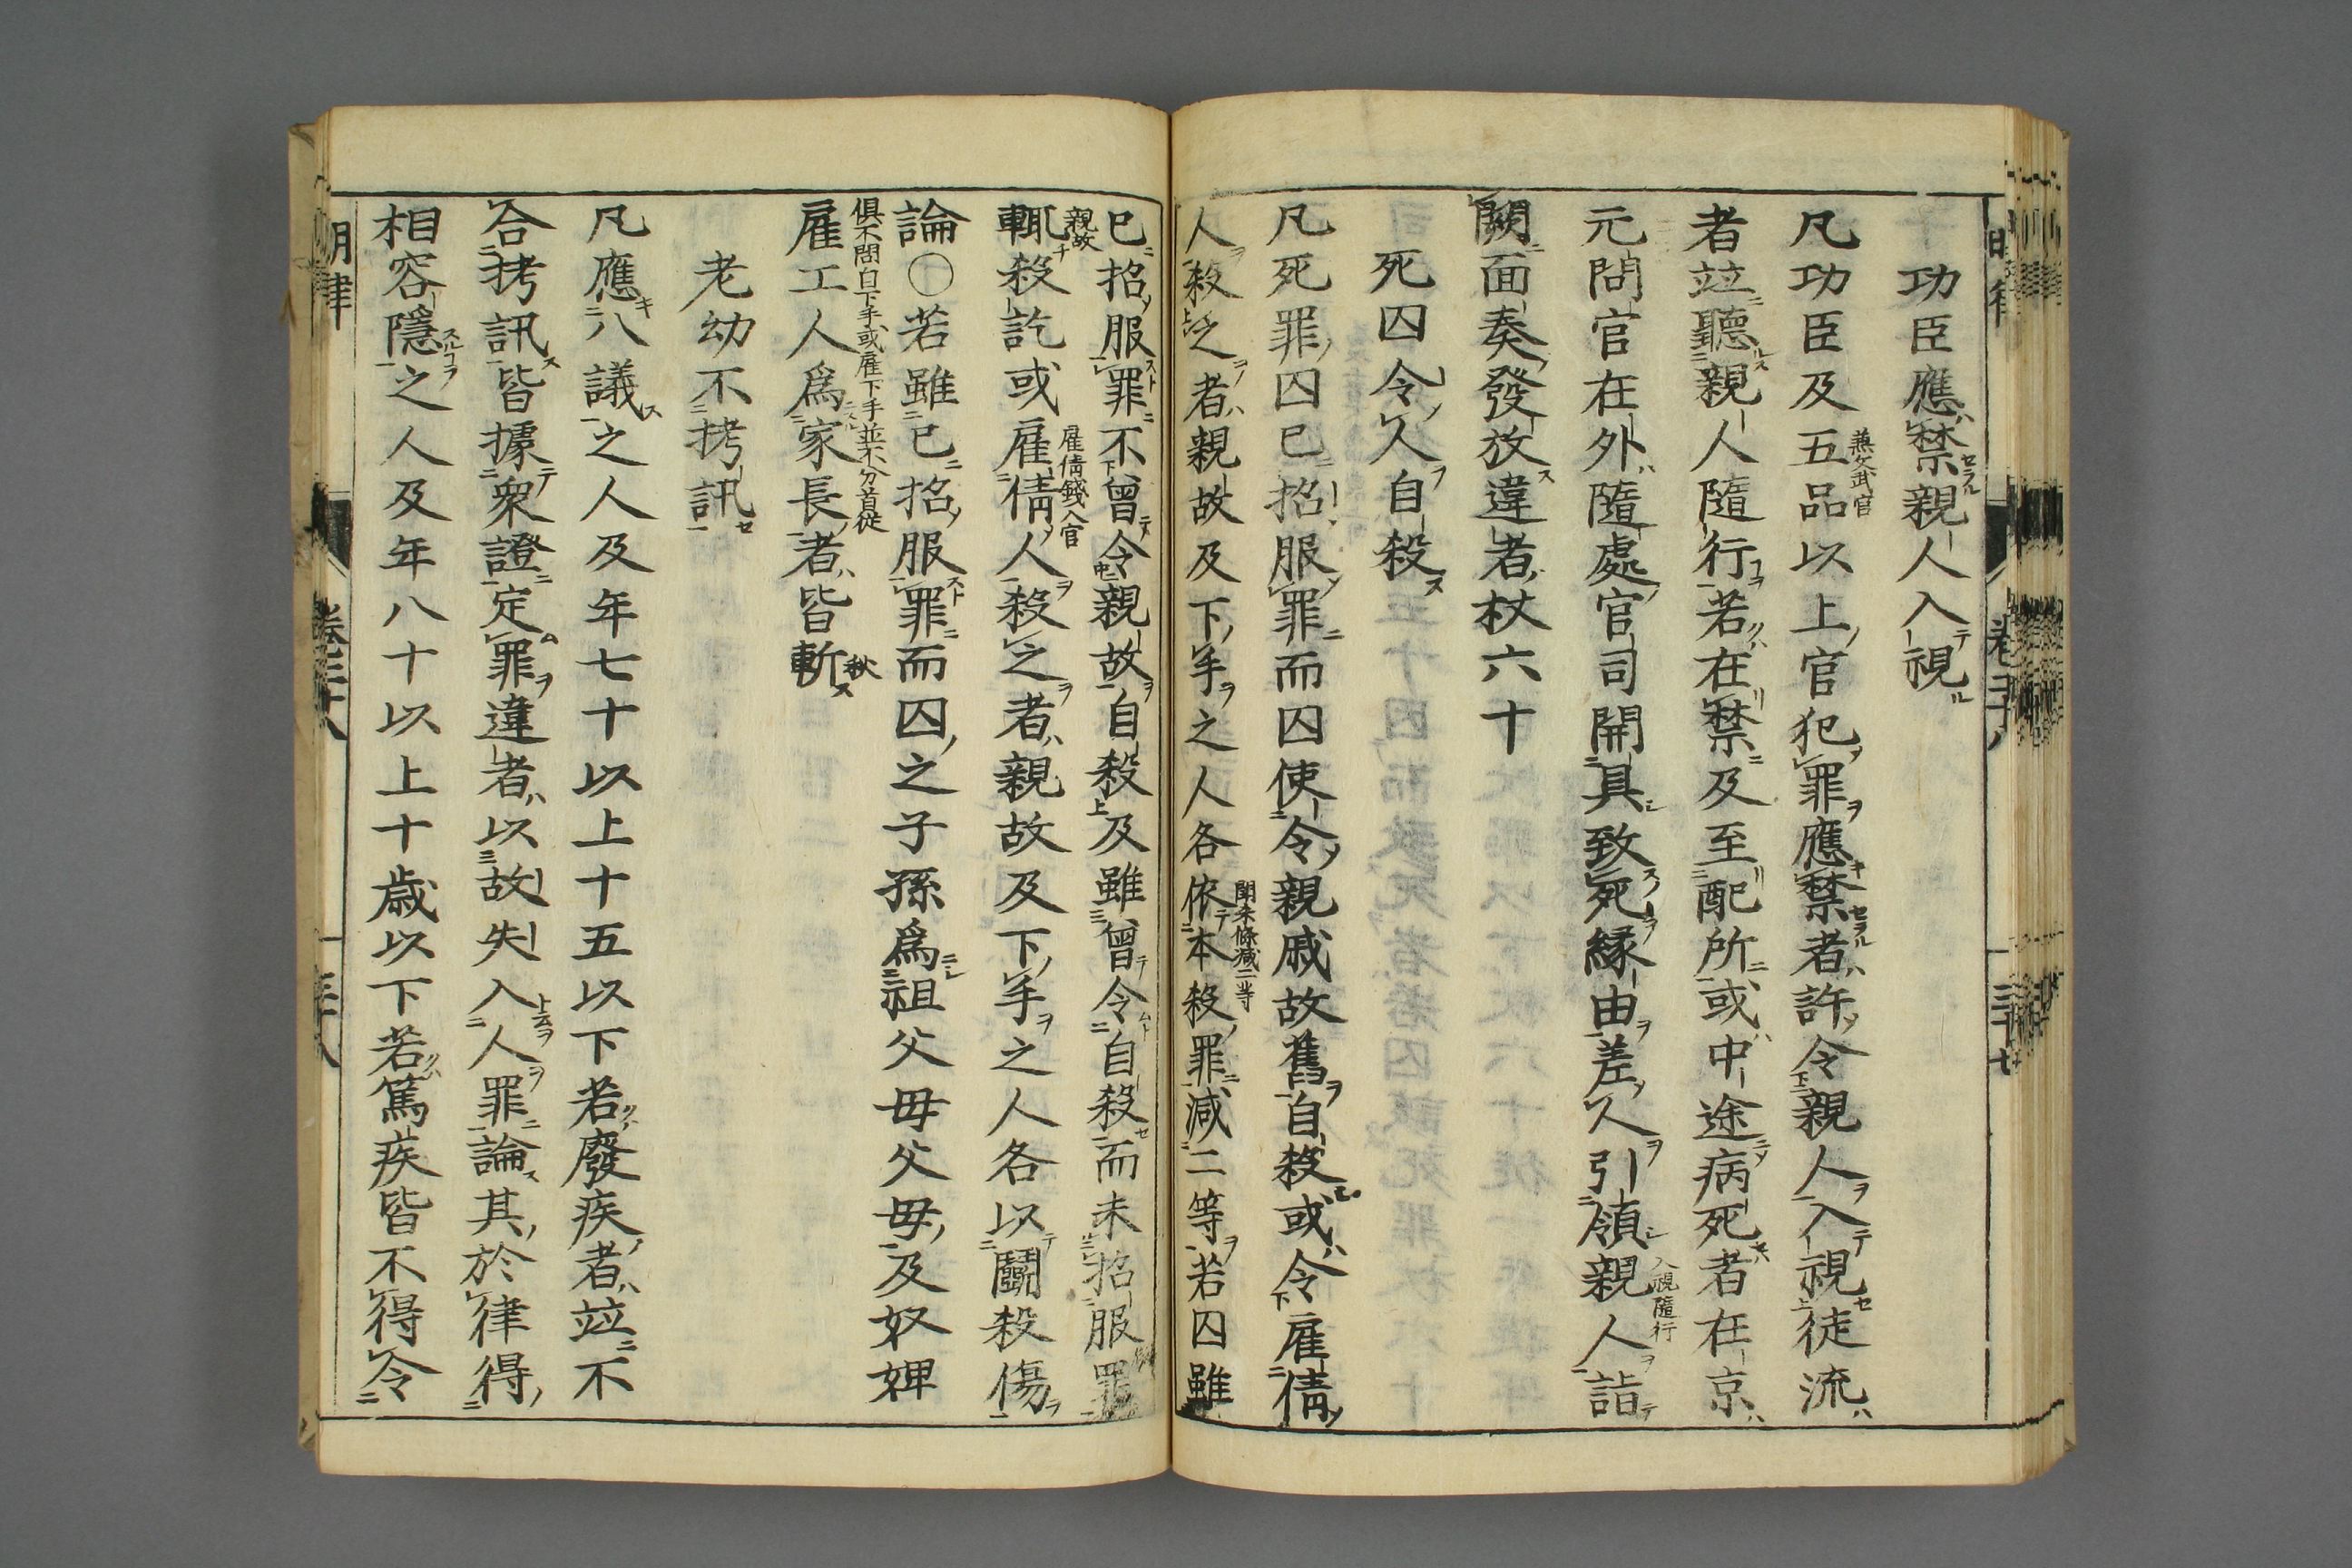 功臣應禁親人入視
凡功臣及五品以上官犯罪應禁者許令親人入視徒流
兼文武官
者竝聽親人隨行若在禁及至配所或中途病死者在京
元問官在外隨處官司開具致死緣由差人引領親人詣
入視隨行
闕面奏發放違者杖六十
死囚令人自殺
凡死罪囚已招服罪而囚使令親戚故舊自殺或令雇倩
人殺之者親故及下手之人各依本殺罪減二等若囚雖
鬪杀條減二等
已招服罪不曾令親故自殺及雖曾令自殺而未招服罪
親故
輒殺訖或雇倩人殺之者親故及下手之人各以鬪殺傷
雇倩錢入官
論○若雖已招服罪而囚之子孫爲祖父母父母及奴婢
俱不問自下手或雇下手並不分首從
雇工人爲家長者皆斬
秋
老幼不拷訊
凡應八議之人及年七十以上十五以下若廢疾者竝不
合拷訊皆據衆證定罪違者以故失入人罪論其於律得
相容隱之人及年八十以上十歲以下若篤疾皆不得令
明律
卷二十八